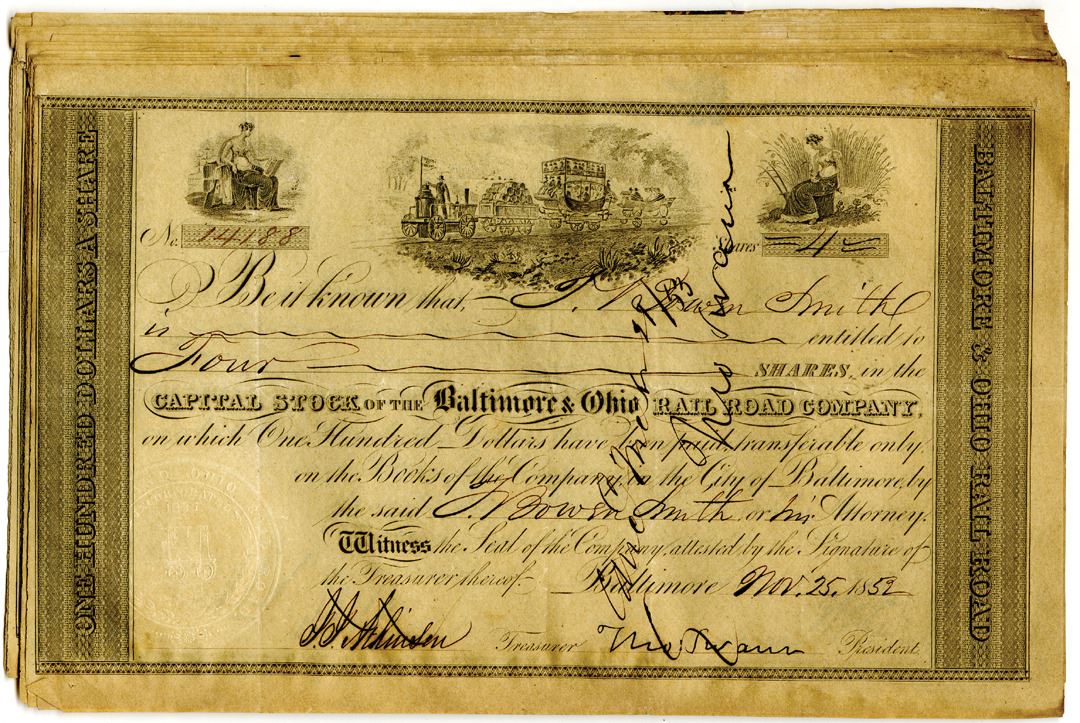 ONE HUNDRED DOLLARS A SHARE
No. 14188
Shares 4
Be it known, that, Bowen Smith
is entitled to
Four SHARES, in the
CAPITAL STOCK OF THE Baltimore & Ohio RAIL ROAD COMPANY,
on which One Hundred Dollars have been paid, transferable only
on the Books of the Company, in the City of Baltimore, by
the said Bowen Smith or his Attorney.
Witness the Seal of the Company, attested by the Signature of
the Treasurer thereof. Baltimore Nov. 25, 1852
Treasurer Tho. Swann President
BALTIMORE & OHIO RAIL ROAD
Tho Swann